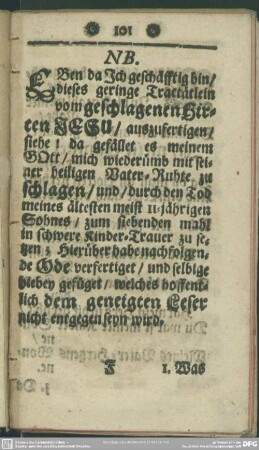 101
NB.
EBen da Ich geschäfftig bin/
dieses geringe Tractätlein
vom geschlagenen Hir-
ten JESU/ auszufertigen/
siehe! da gefället es meinem
GOtt/ mich wiederümb mit sei-
ner heiligen Vater-Ruhte zu
schlagen/ und/ durch den Tod
meines ältesten meist 11-jährigen
Sohnes/ zum siebenden mahl
in schwere Kinder-Trauer zu se-
tzen; Hierüber habe nachfolgen-
de Ode verfertiget/ und selbige
hiebey gefüget/ welches hoffent-
lich dem geneigten Leser
nicht entgegen seyn wird.
1. Was
DFG